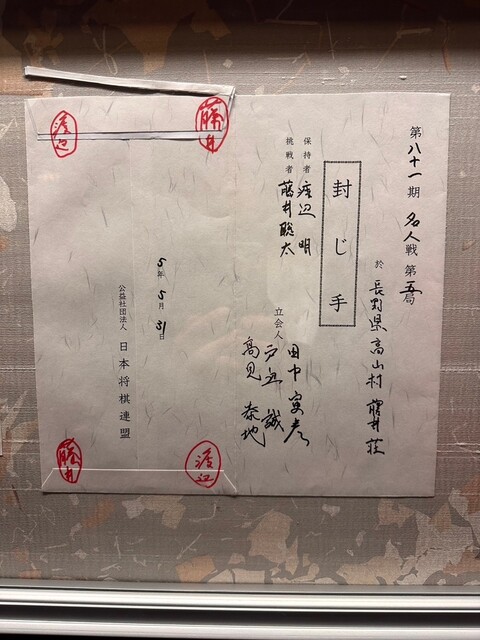 第八十一期 名人戦 第五局
於 長野県高山村 藤井荘
封じ手
保持者 渡辺 明
挑戦者 藤井聡太
立会人 田中寅彦
戸辺 誠
高見 泰地
5年5月31日
公益社団法人 日本将棋連盟
渡辺
藤井
藤井
渡辺